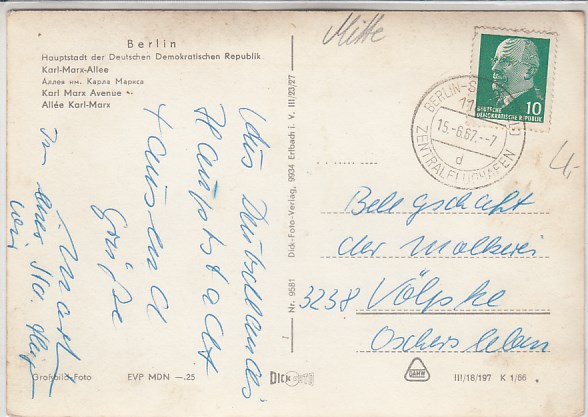 Berlin
Hauptstadt der Deutschen Demokratischen Republik
Karl-Marx-Allee
Аллея им. Карла Маркса
Karl Marx Avenue
Allée Karl-Marx
Aus Deutschlands
Hauptstadt
tausend
Grüße
Großbild-Foto
EVP MDN —.25
Nr. 9581
Dick-Foto-Verlag, 9934 Erlbach i. V. III/23/27
DICK
FOTO
Mitte
DEUTSCHE
DEMOKRATISCHE REPUBLIK
10
BERLIN-S
11
15.-6.67.-7
d
ZENTRALFLUGHAFEN
4,-
Belegschaft
der Molkerei
3238 Völpke
Oschersleben
III/18/197 K 1/66